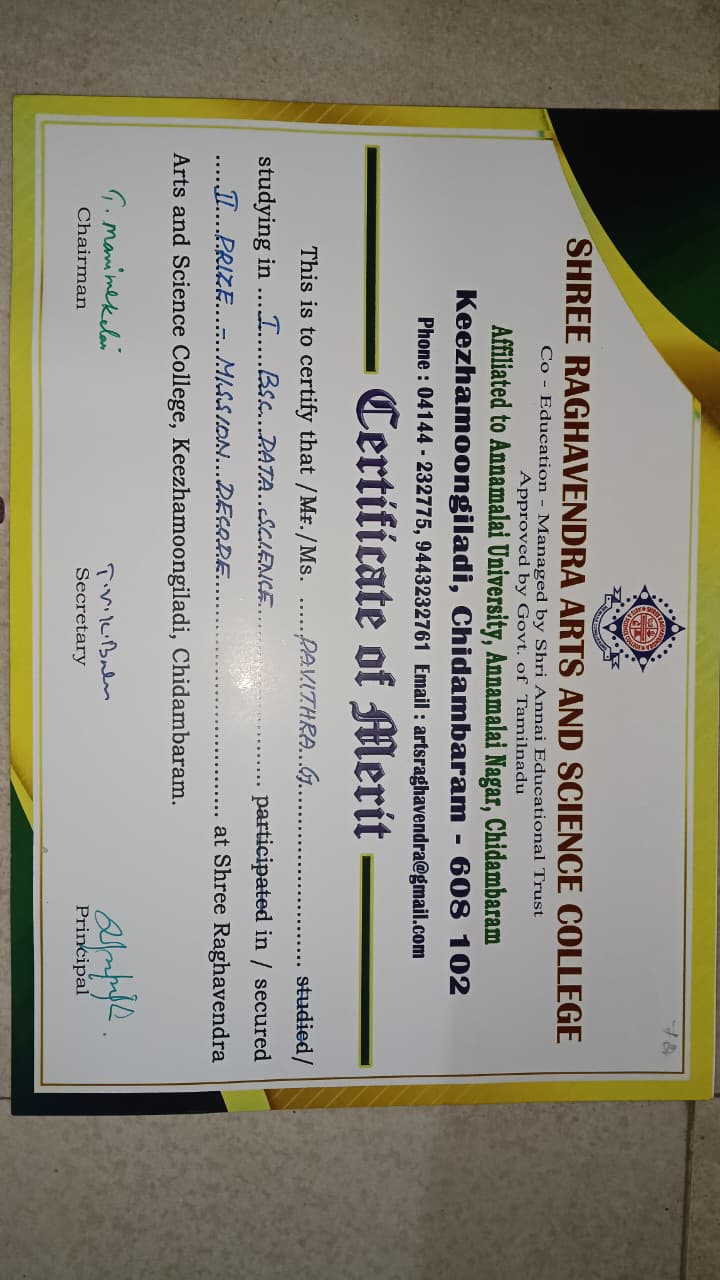 SHREE RAGHAVENDRA ARTS AND SCIENCE COLLEGE
Co - Education - Managed by Shri Annai Educational Trust
Approved by Govt. of Tamilnadu
Affiliated to Annamalai University, Annamalai Nagar, Chidambaram
Keezhamoongiladi, Chidambaram - 608 102
Phone : 04144 - 232775, 9443232761 Email : artsraghavendra@gmail.com
Certificate of Merit
This is to certify that /Mr./Ms. ......PAVITHRA...G........................... studied/
studying in ....I.....BSC...DATA..SCIENCE....................... participated in / secured
.....II....PRIZE.....-.. MISSION...DECODE.................................. at Shree Raghavendra
Arts and Science College, Keezhamoongiladi, Chidambaram.
T. Manimekalai
Chairman
Secretary
Principal